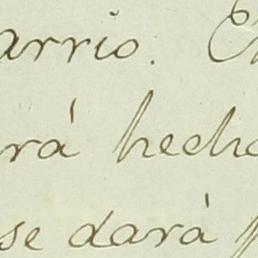 arrio. E
rá hecho
se dará